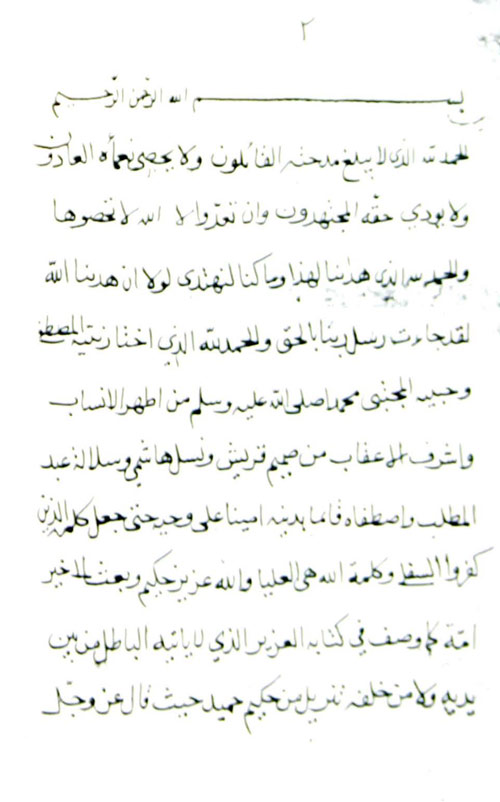 ٢
بسم الله الرحمن الرحيم
الحمد لله الذي لا يبلغ مدحته القائلون ولا يحصى نعمآه العادون
ولا يودي حقه المجتهدون وان تعدوا لا الله لا تحصوها
والحمد لله الذي هدينا لهذا وما كنا لنهتدى لولا ان هدينا الله
لقد جاءت رسل ربنا بالحق والحمد لله الذي اختار نبيه المصطفى
وحبيبه المجتبى محمدا صلى الله عليه وسلم من اطهر الانساب
واشرف الاعقاب من صميم قريش ونسل هاشمي وسلالة عبد
المطلب واصطفاه قائما بدينه امينا على وحيه حتى جعل كلمة الذين
كفروا السفلى وكلمة الله هى العليا والله عزيز حكيم وبعث لاخير
امة كما وصف في كتابه العزيز الذي لا ياتيه الباطل من بين
يديه ولا من خلفه تنزيل من حكيم حميد حيث قال عز وجل